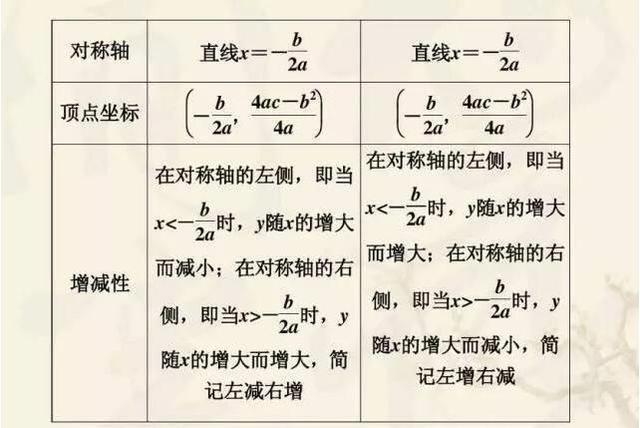 对称轴 直线x=-b/2a 直线x=-b/2a
顶点坐标 (-b/2a, 4ac-b²/4a) (-b/2a, 4ac-b²/4a)
增减性
在对称轴的左侧，即当
x<-b/2a时，y随x的增大
而减小；在对称轴的右
侧，即当x>-b/2a时，y
随x的增大而增大，简
记左减右增
在对称轴的左侧，即当
x<-b/2a时，y随x的增大
而增大；在对称轴的右
侧，即当x>-b/2a时，y
随x的增大而减小，简
记左增右减